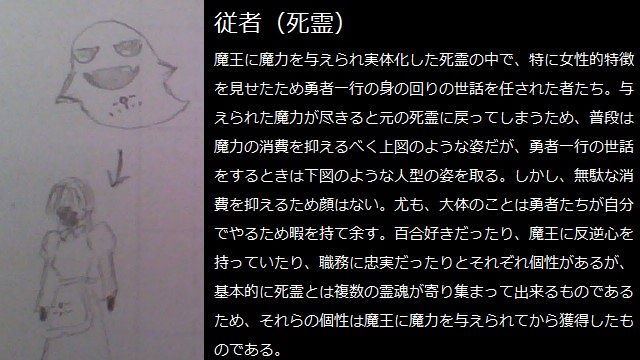 従者（死霊）
魔王に魔力を与えられ実体化した死霊の中で、特に女性的特徴
を見せたため勇者一行の身の回りの世話を任された者たち。与
えられた魔力が尽きると元の死霊に戻ってしまうため、普段は
魔力の消費を抑えるべく上図のような姿だが、勇者一行の世話
をするときは下図のような人型の姿を取る。しかし、無駄な消
費を抑えるため顔はない。尤も、大体のことは勇者たちが自分
でやるため暇を持て余す。百合好きだったり、魔王に反逆心を
持っていたり、職務に忠実だったりとそれぞれ個性があるが、
基本的に死霊とは複数の霊魂が寄り集まって出来るものである
ため、それらの個性は魔王に魔力を与えられてから獲得したも
のである。